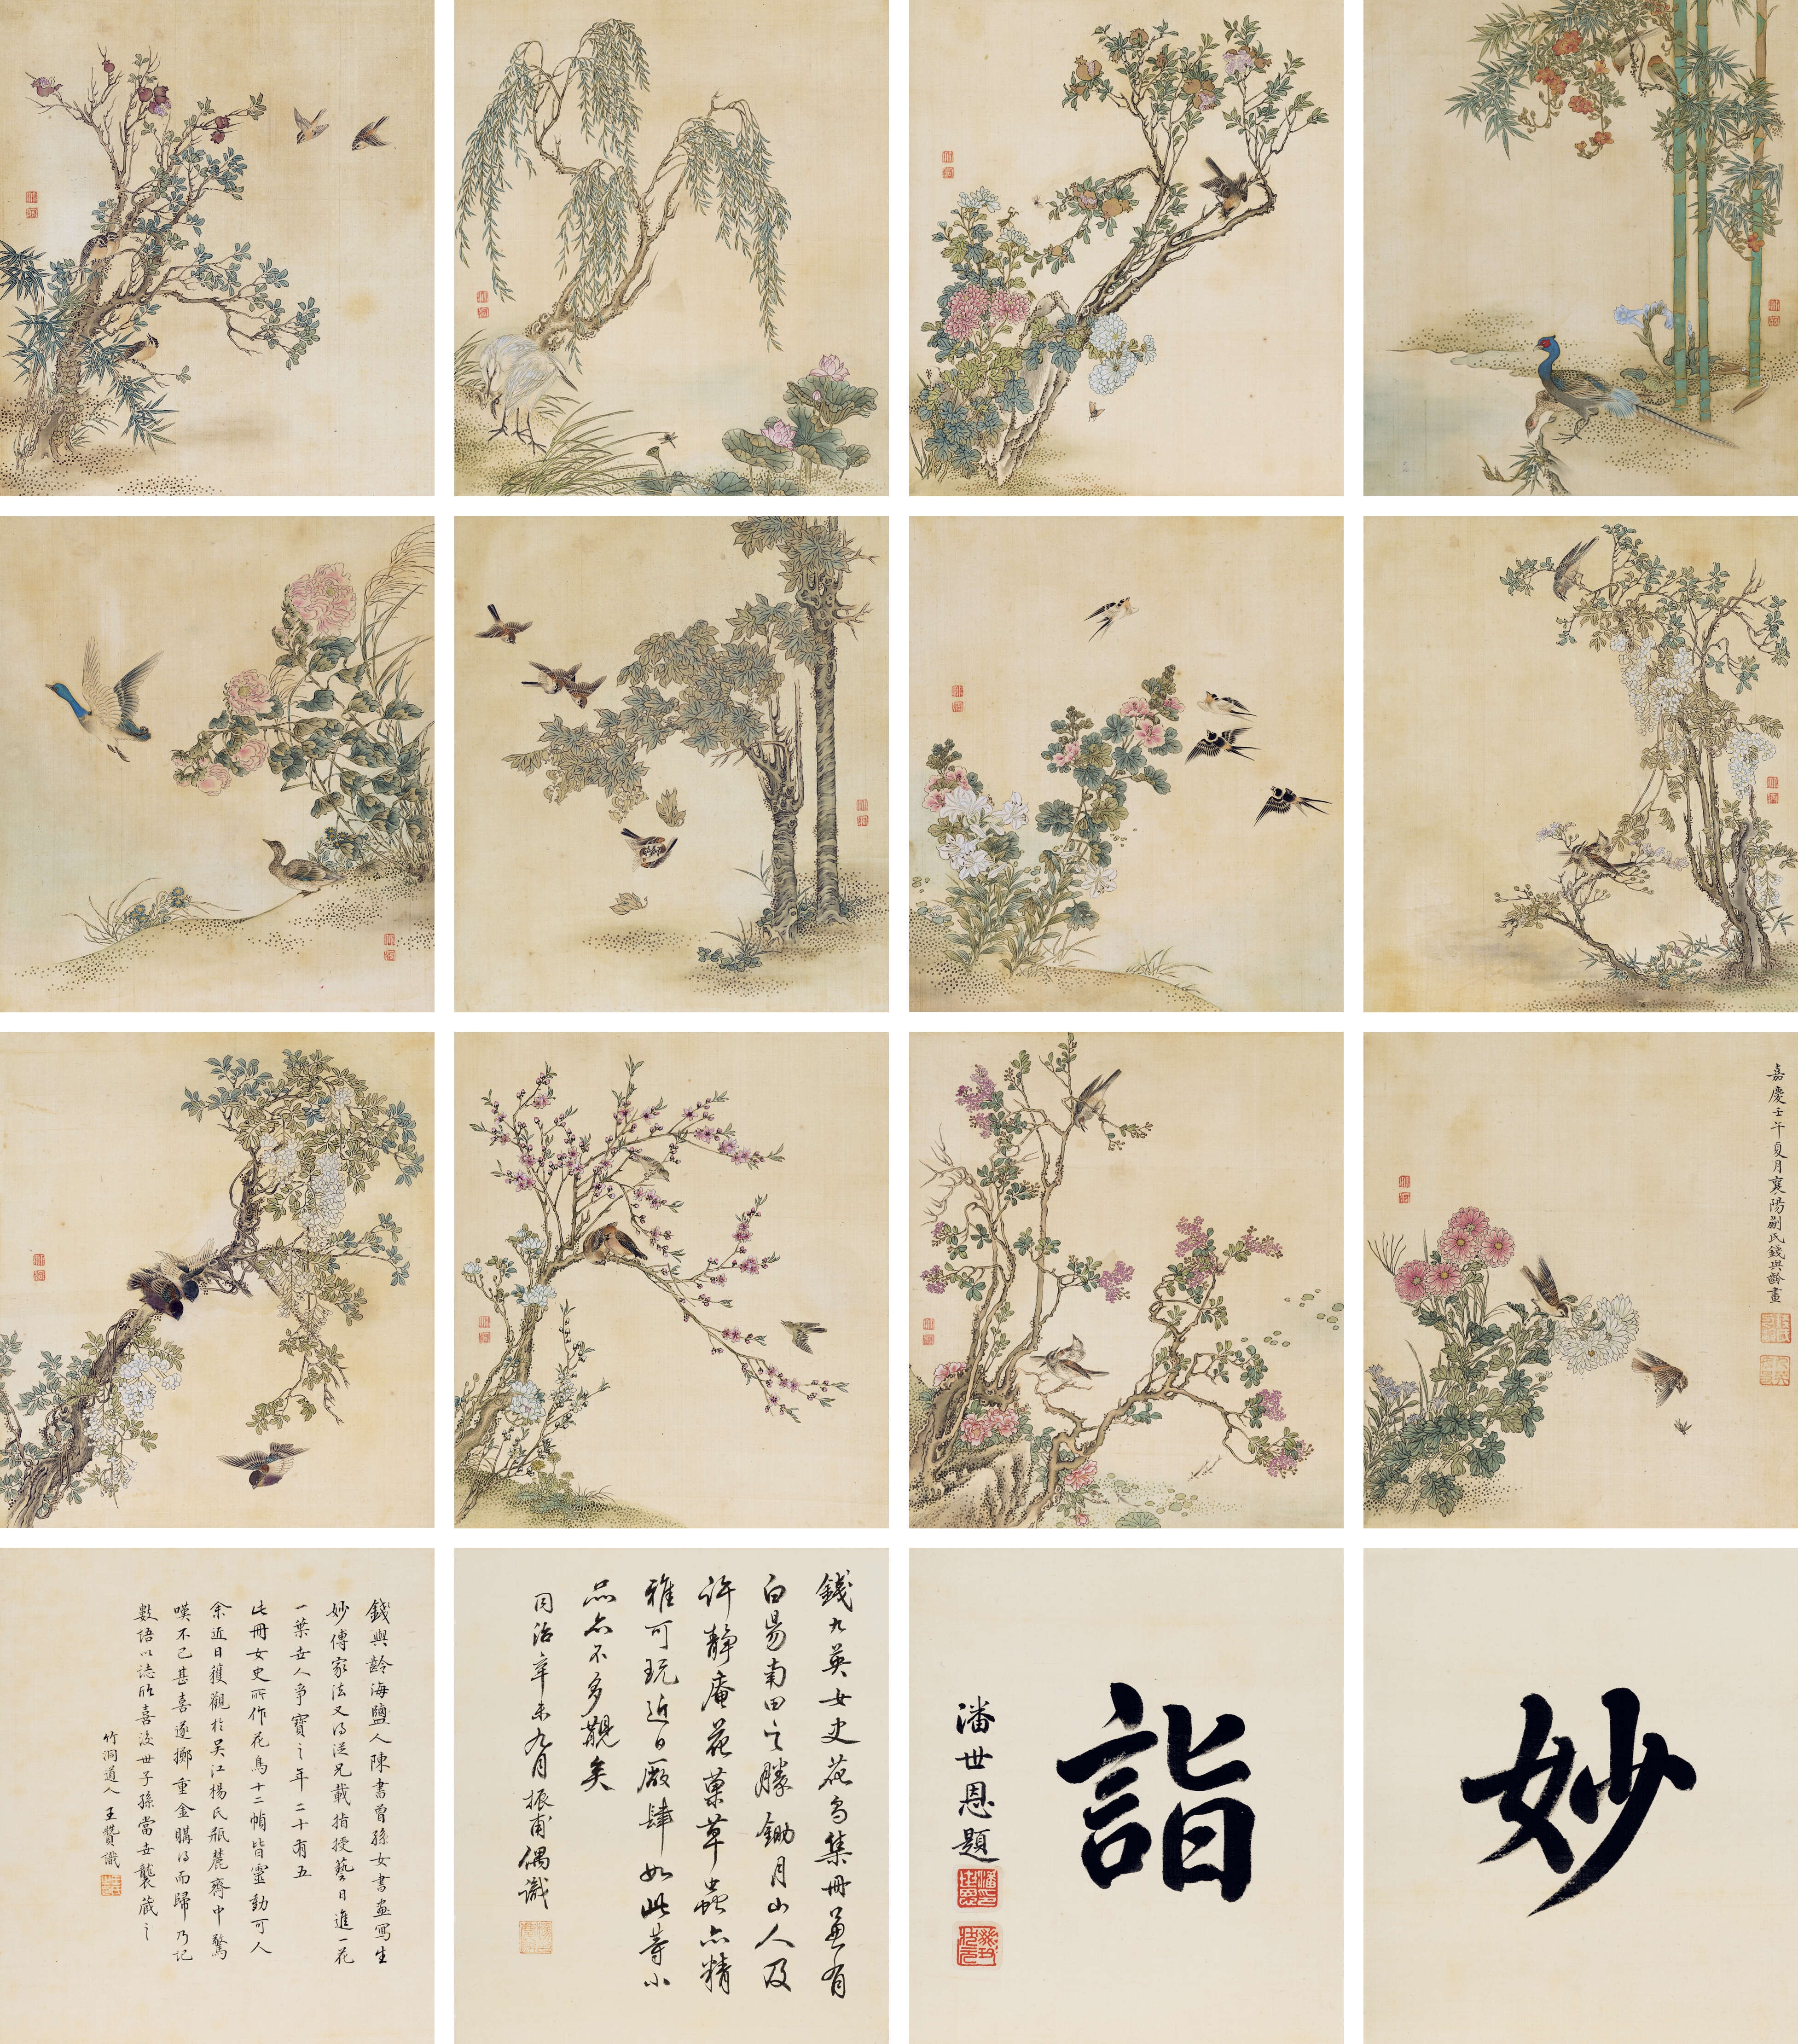 嘉慶壬午夏月襄陽嗣氏錢與齡畫
妙
詣
潘世恩題
錢九英女史花鳥集冊兼有
白陽南田之勝鋤月山人及
許靜庵花藁草蟲亦精
雅可玩近日廠肆如此等小
品亦不多覯矣
同治辛未九月振甫偶識
錢與齡海鹽人陳書曾孫女書畫寫生
妙傳家法又得從兄載指授藝日進一花
一葉世人爭寶之年二十有五
此冊女史所作花鳥十二幀皆靈動可人
余近日獲觀於吳江楊氏瓶麓齋中驚
嘆不已甚喜遂擲重金購得而歸乃記
數語以誌欣喜後世子孫當世襲藏之
竹洞道人王贊識